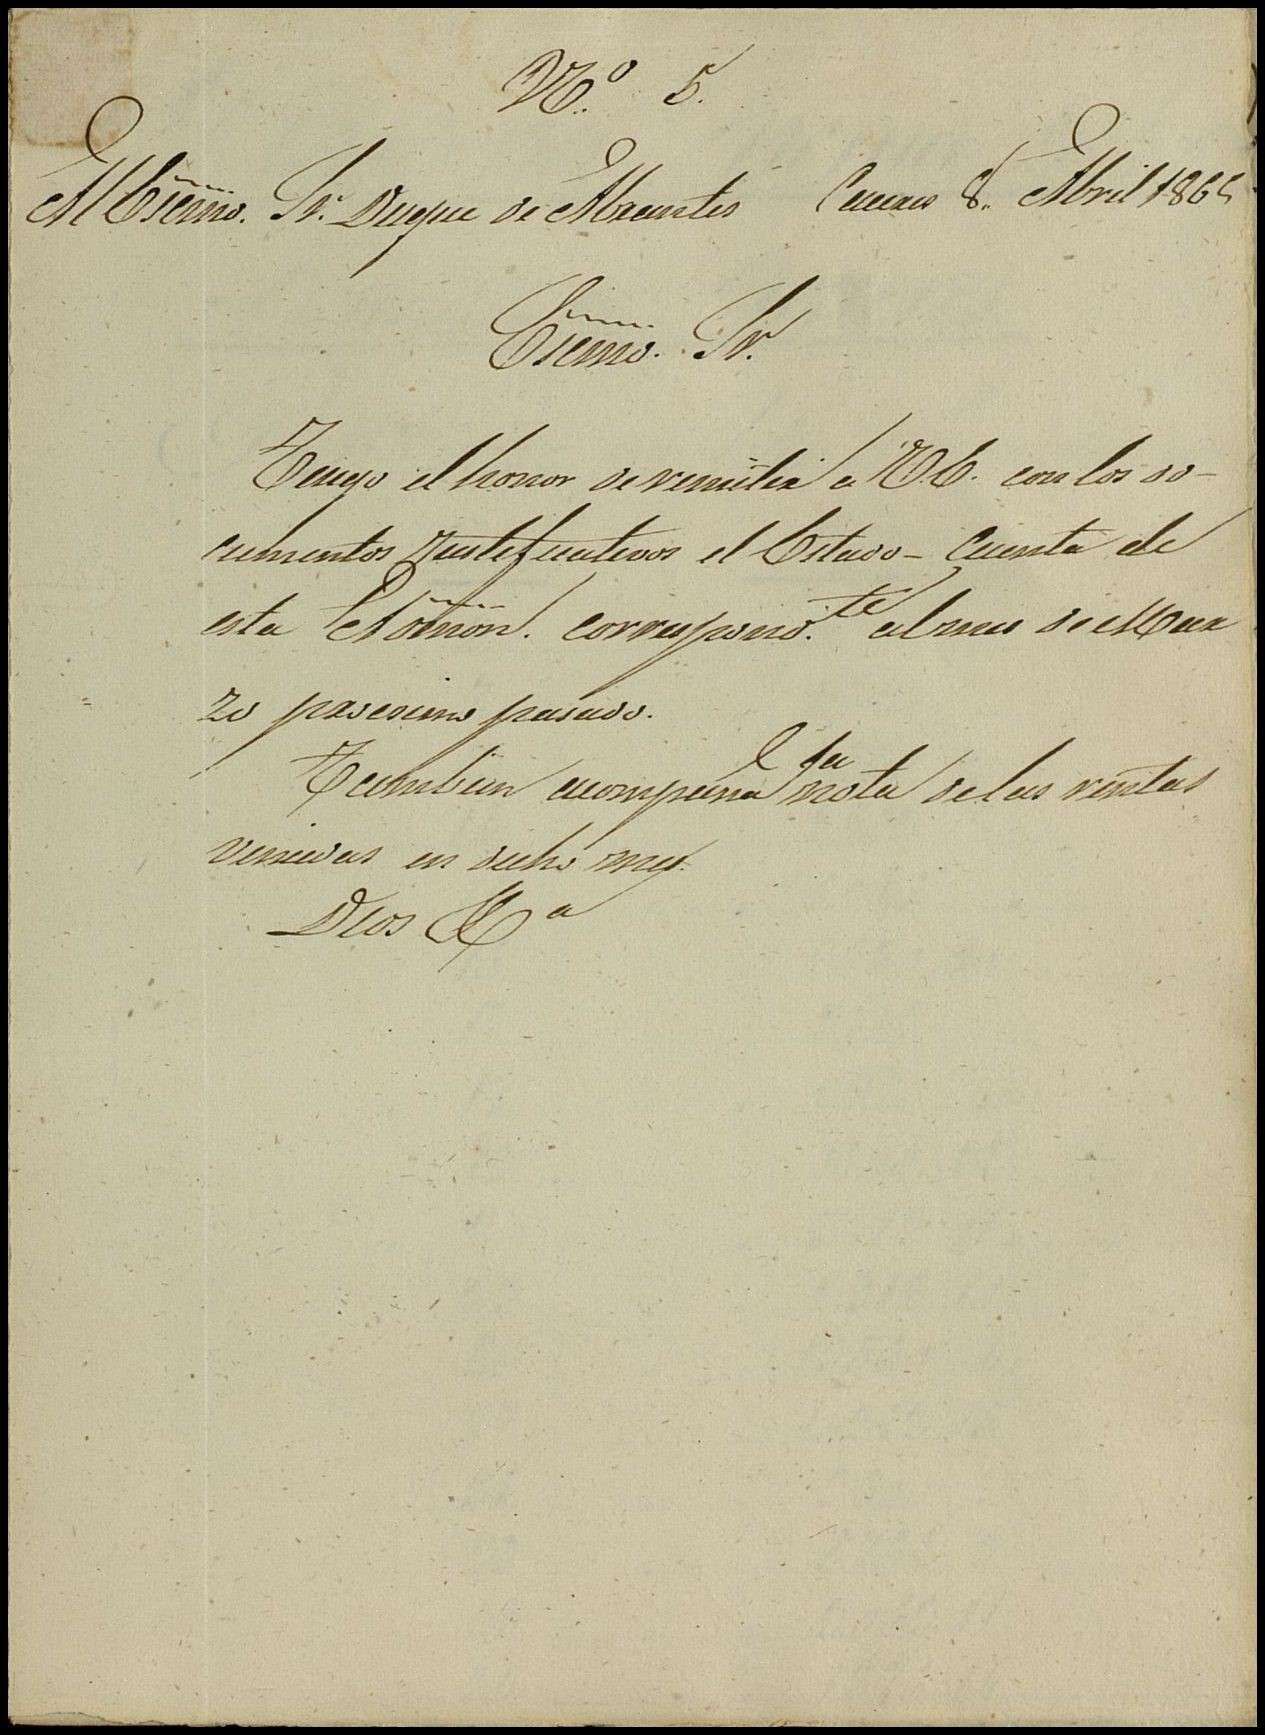 Nº 5.
Al Excmo. Sr. Duque de Abrantes Caceres 8. Abril 186
Excmo. Sr.
Tengo el honor de remitir a V.E. con los do-
cumentos justificativos el Estado-Cuenta de
esta Admón. correspond.te al mes de Mar
zo procsimo pasado.
Tambien acompaña la nota de las rentas
vencidas en dicho mes.
Dios &a